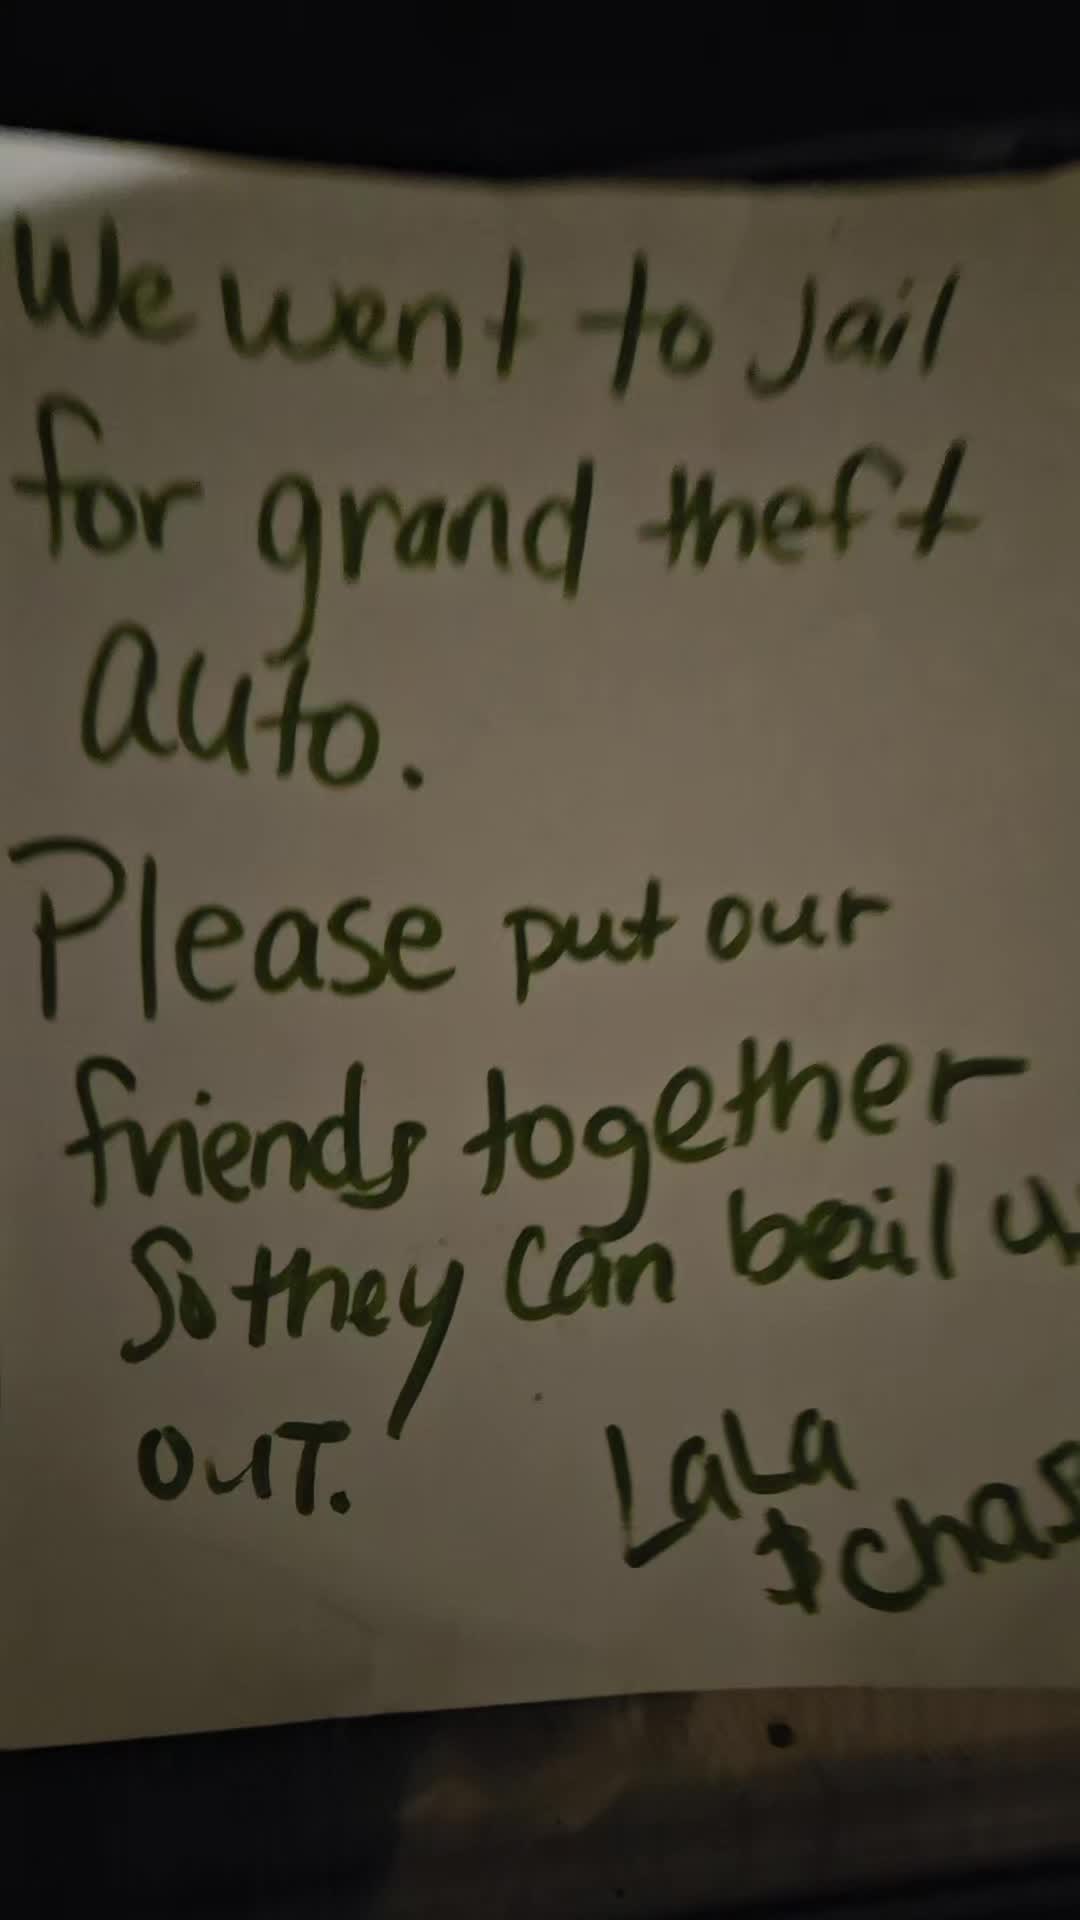 We went to Jail
for grand theft
auto.
Please put our
friends together
So they can bail us
OUT.
LaLa
& chas